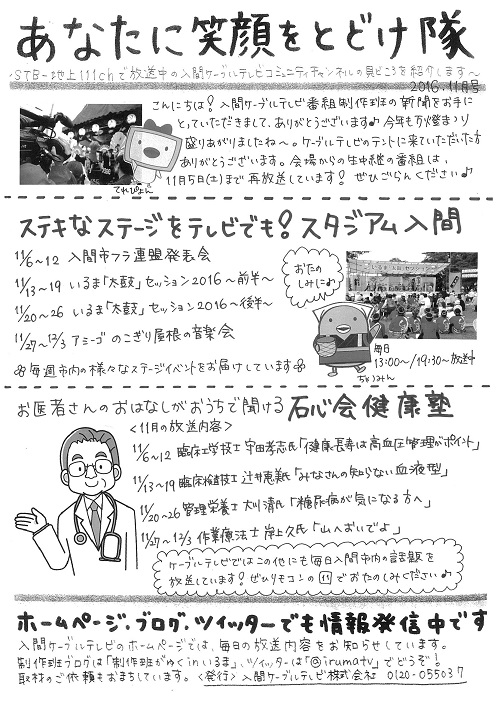 あなたに笑顔をとどけ隊
～STB-地上111chで放送中の入間ケーブルテレビコミュニティチャンネルの見どころを紹介します～
2016.11月号
こんにちは！入間ケーブルテレビ番組制作班の新聞をお手に
とっていただきまして、ありがとうございます♪今年も万燈まつり
盛りあがりましたね～。ケーブルテレビのテントに来ていただいた方
ありがとうございます。会場からの生中継の番組は、
11月5日(土)まで再放送しています！ぜひごらんください♪
てれぴょん
ステキなステージをテレビでも！スタジアム入間
11/6～12 入間市フラ連盟発表会
11/13～19 いるま「太鼓」セッション2016～前半～
11/20～26 いるま「太鼓」セッション2016～後半～
11/27～12/3 アミーゴ のこぎり屋根の音楽会
毎週市内の様々なステージイベントをお届けしています
おたの
しみに♪
毎日
13:00～/19:30～放送中
お医者さんのおはなしがおうちで聞ける 石心会健康塾
<11月の放送内容>
11/6～12 臨床工学技士 宇田孝志氏「健康長寿は高血圧管理がポイント」
11/13～19 臨床検査技士 辻井恵美氏「みなさんの知らない血液型」
11/20～26 管理栄養士 大川清氏「糖尿病が気になる方へ」
11/27～12/3 作業療法士 岸上久氏「山へおいでよ」
ケーブルテレビではこの他にも毎日入間市内の話題を
放送しています！ぜひリモコンの11でおたのしみください♪
ホームページ、ブログ、ツイッターでも情報発信中です
入間ケーブルテレビのホームページでは、毎日の放送内容をお知らせしています。
制作班ブログは「制作班がゆくinいるま」、ツイッターは「@irumatv」でどうぞ！
取材のご依頼もおまちしています。<発行>入間ケーブルテレビ株式会社 0120-055037